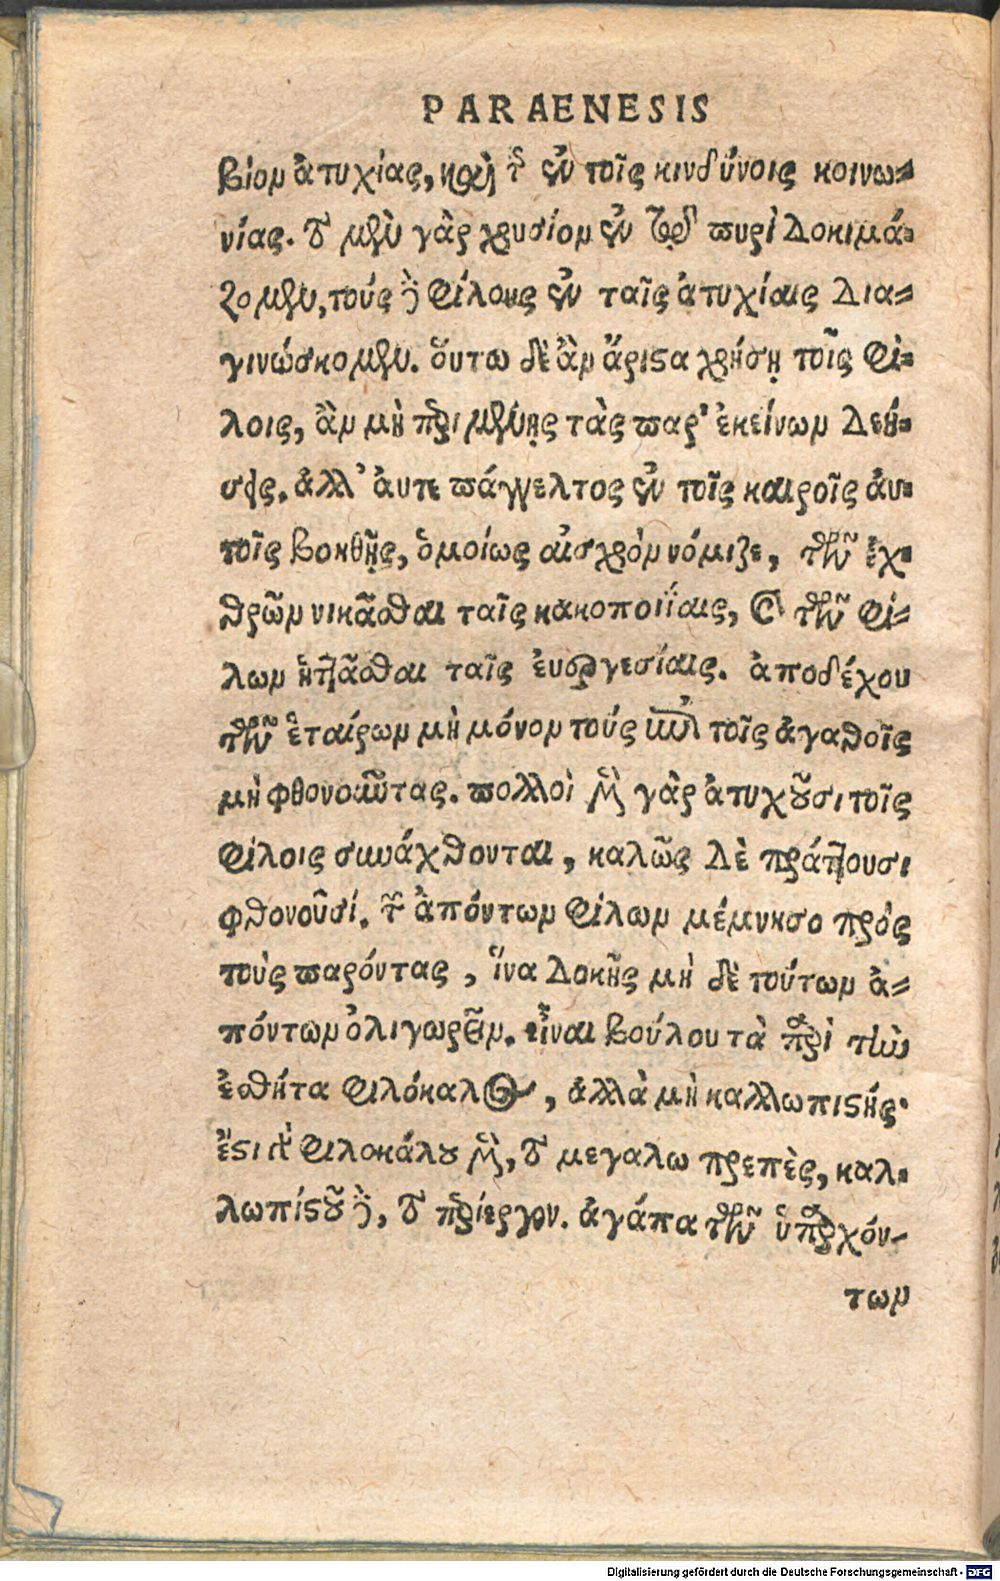 PARAENESIS
βίον ἀτυχίας, καὶ τῆς ἐν τοῖς κινδύνοις κοινω=
νίας. τὸ μὲν γὰρ χρυσίον ἐν τῷ πυρὶ δοκιμά=
ζομεν, τούς δὲ φίλους ἐν ταῖς ἀτυχίαις δια=
γινώσκομεν. ὅυτω δὲ ἂν ἄριστα χρήσῃ τοῖς φί=
λοις, ἂν μὴ περιμένῃς τὰς παρ' ἐκείνων δεή=
σεις. ἀλλ' ἀυτεπάγγελτος ἐν τοῖς καιροῖς ἀυ=
τοῖς βοηθῇς, ὁμοίως αἰσχρὸν νόμιζε, τῶν ἐχ=
θρῶν νικᾶσθαι ταῖς κακοποιΐαις, καὶ τῶν φί=
λων ἡττᾶσθαι ταῖς ἐυεργεσίαις. ἀποδέχου
τῶν ἑταίρων μὴ μόνον τούς ἐπὶ τοῖς ἀγαθοῖς
μὴ φθονοῦντας. πολλοὶ μὲν γὰρ ἀτυχοῦσι τοῖς
φίλοις συνάχθονται, καλῶς δὲ πράττουσι
φθονοῦσί. τῶν ἀπόντων φίλων μέμνησο πρός
τοὺς παρόντας, ἵνα δοκῇς μὴ δὲ τούτων ἀ=
πόντων ὀλιγωρεῖν. εἶναι βούλου τὰ περὶ τὴν
ἐσθῆτα φιλόκαλος, ἀλλὰ μὴ καλλωπιστής·
ἔστι δὲ φιλοκάλου μὲν, τὸ μεγαλωπρεπὲς, καλ=
λωπίστοῦ δὲ, τὸ περίεργον. ἀγάπα τῶν ὑπαρχόν-
των
Digitalisierung gefördert durch die Deutsche Forschungsgemeinschaft - DFG